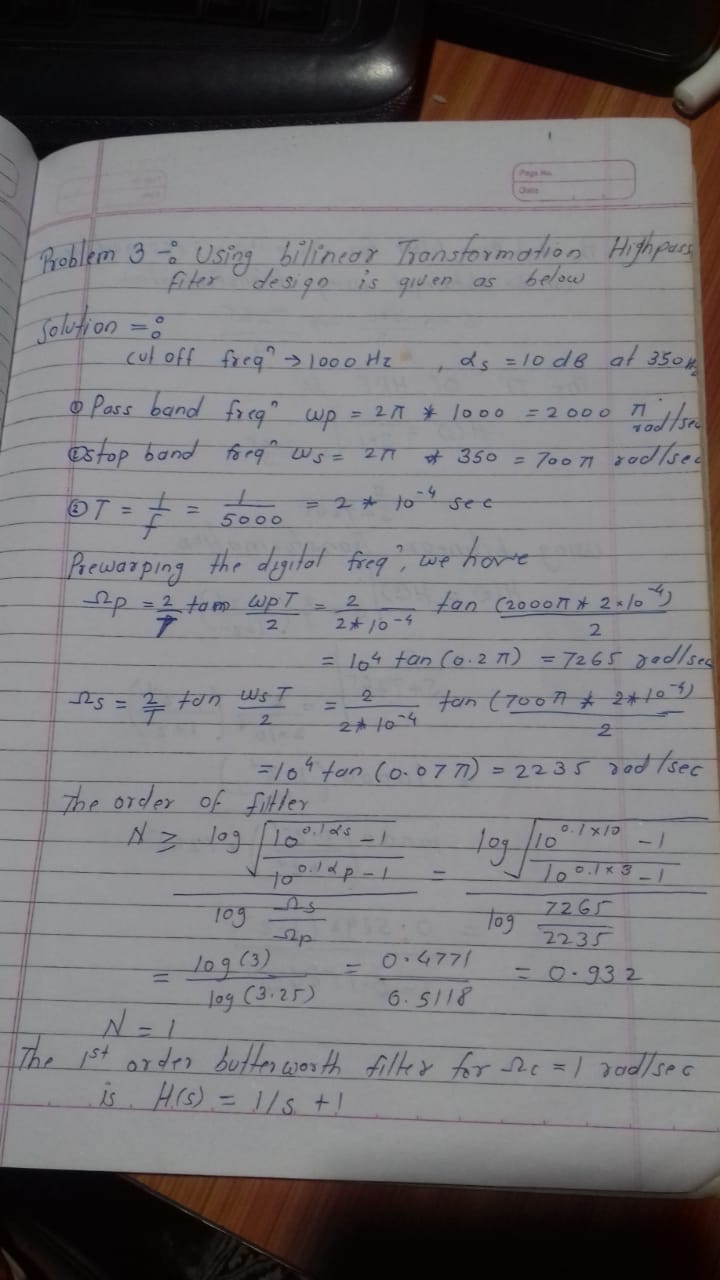 Page No.
Date
Problem 3 :- Using bilinear Transformation Highpass
filter design is given as below
Solution =:
cut off freqⁿ → 1000 Hz , αs = 10 dB at 350 Hz
① Pass band freqⁿ ωp = 2π * 1000 = 2000 π rad/sec
② Stop band freqⁿ ωs = 2π * 350 = 700π rad/sec
② T = 1/f = 1/5000 = 2 * 10⁻⁴ sec
Prewarping the digital freqⁿ, we have
Ωp = 2/T tan ωpT/2 = 2/(2*10⁻⁴) tan (2000π * 2×10⁻⁴)/2
= 10⁴ tan (0.2π) = 7265 rad/sec
Ωs = 2/T tan ωsT/2 = 2/(2*10⁻⁴) tan (700π * 2*10⁻⁴)/2
= 10⁴ tan (0.07π) = 2235 rad/sec
The order of filter
N ≥ log √((10^0.1αs - 1)/(10^0.1αp - 1)) / log (Ωs/Ωp) = log √((10^0.1×10 - 1)/(10^0.1×3 - 1)) / log (7265/2235)
= log(3)/log(3.25) = 0.4771/0.5118 = 0.932
N = 1
The 1st order butterworth filter for Ωc = 1 rad/sec
is H(s) = 1/s + 1